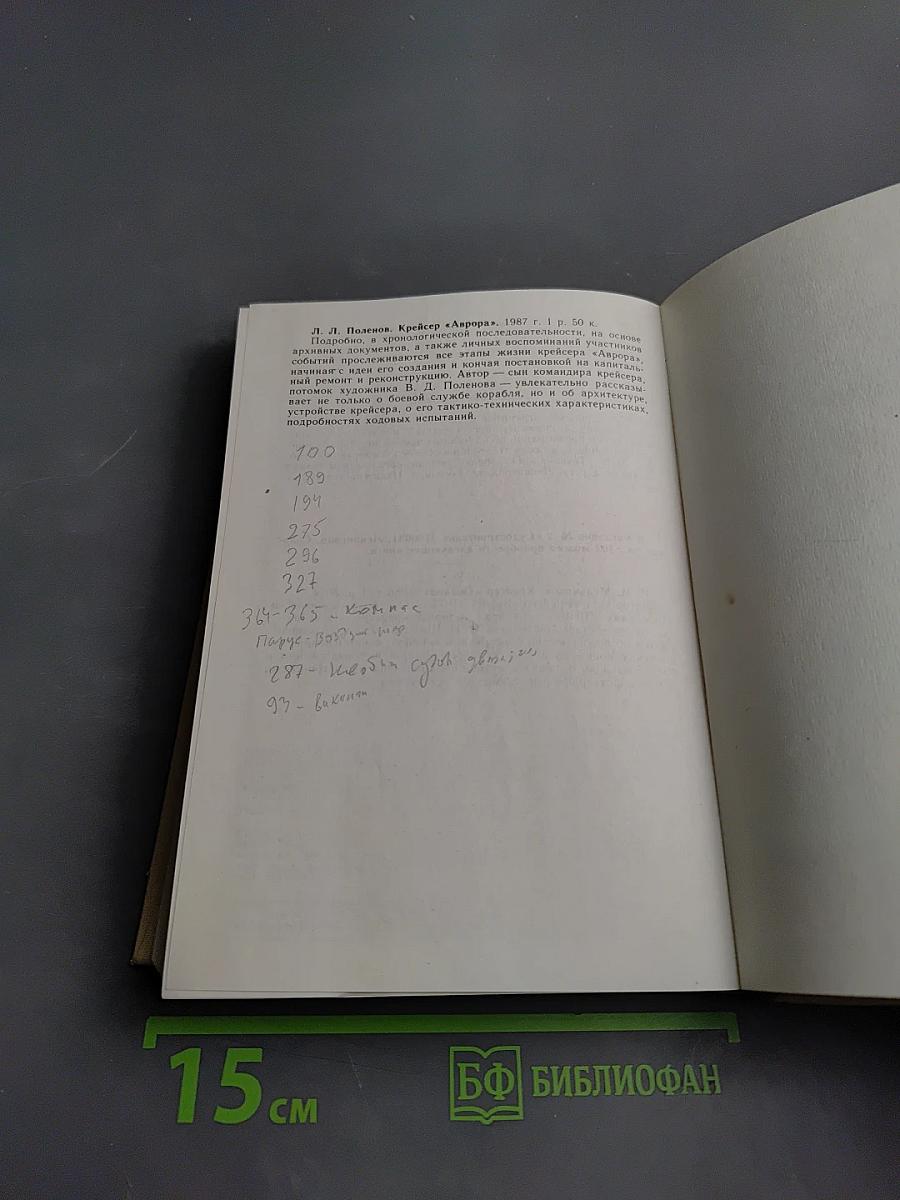 Л. Л. Поленов. Крейсер «Аврора». 1987 г. 1 р. 50 к.
Подробно, в хронологической последовательности, на основе
архивных документов, а также личных воспоминаний участников
событий прослеживаются все этапы жизни крейсера «Аврора»,
начиная с идеи его создания и кончая постановкой на капиталь-
ный ремонт и реконструкцию. Автор — сын командира крейсера,
потомок художника В. Д. Поленова — увлекательно рассказы-
вает не только о боевой службе корабля, но и об архитектуре,
устройстве крейсера, о его тактико-технических характеристиках,
подробностях ходовых испытаний.
100
189
194
275
296
327
364-365 - компас
Парус -
287 - судов
93 -
15 см
БФ БИБЛИОФАН